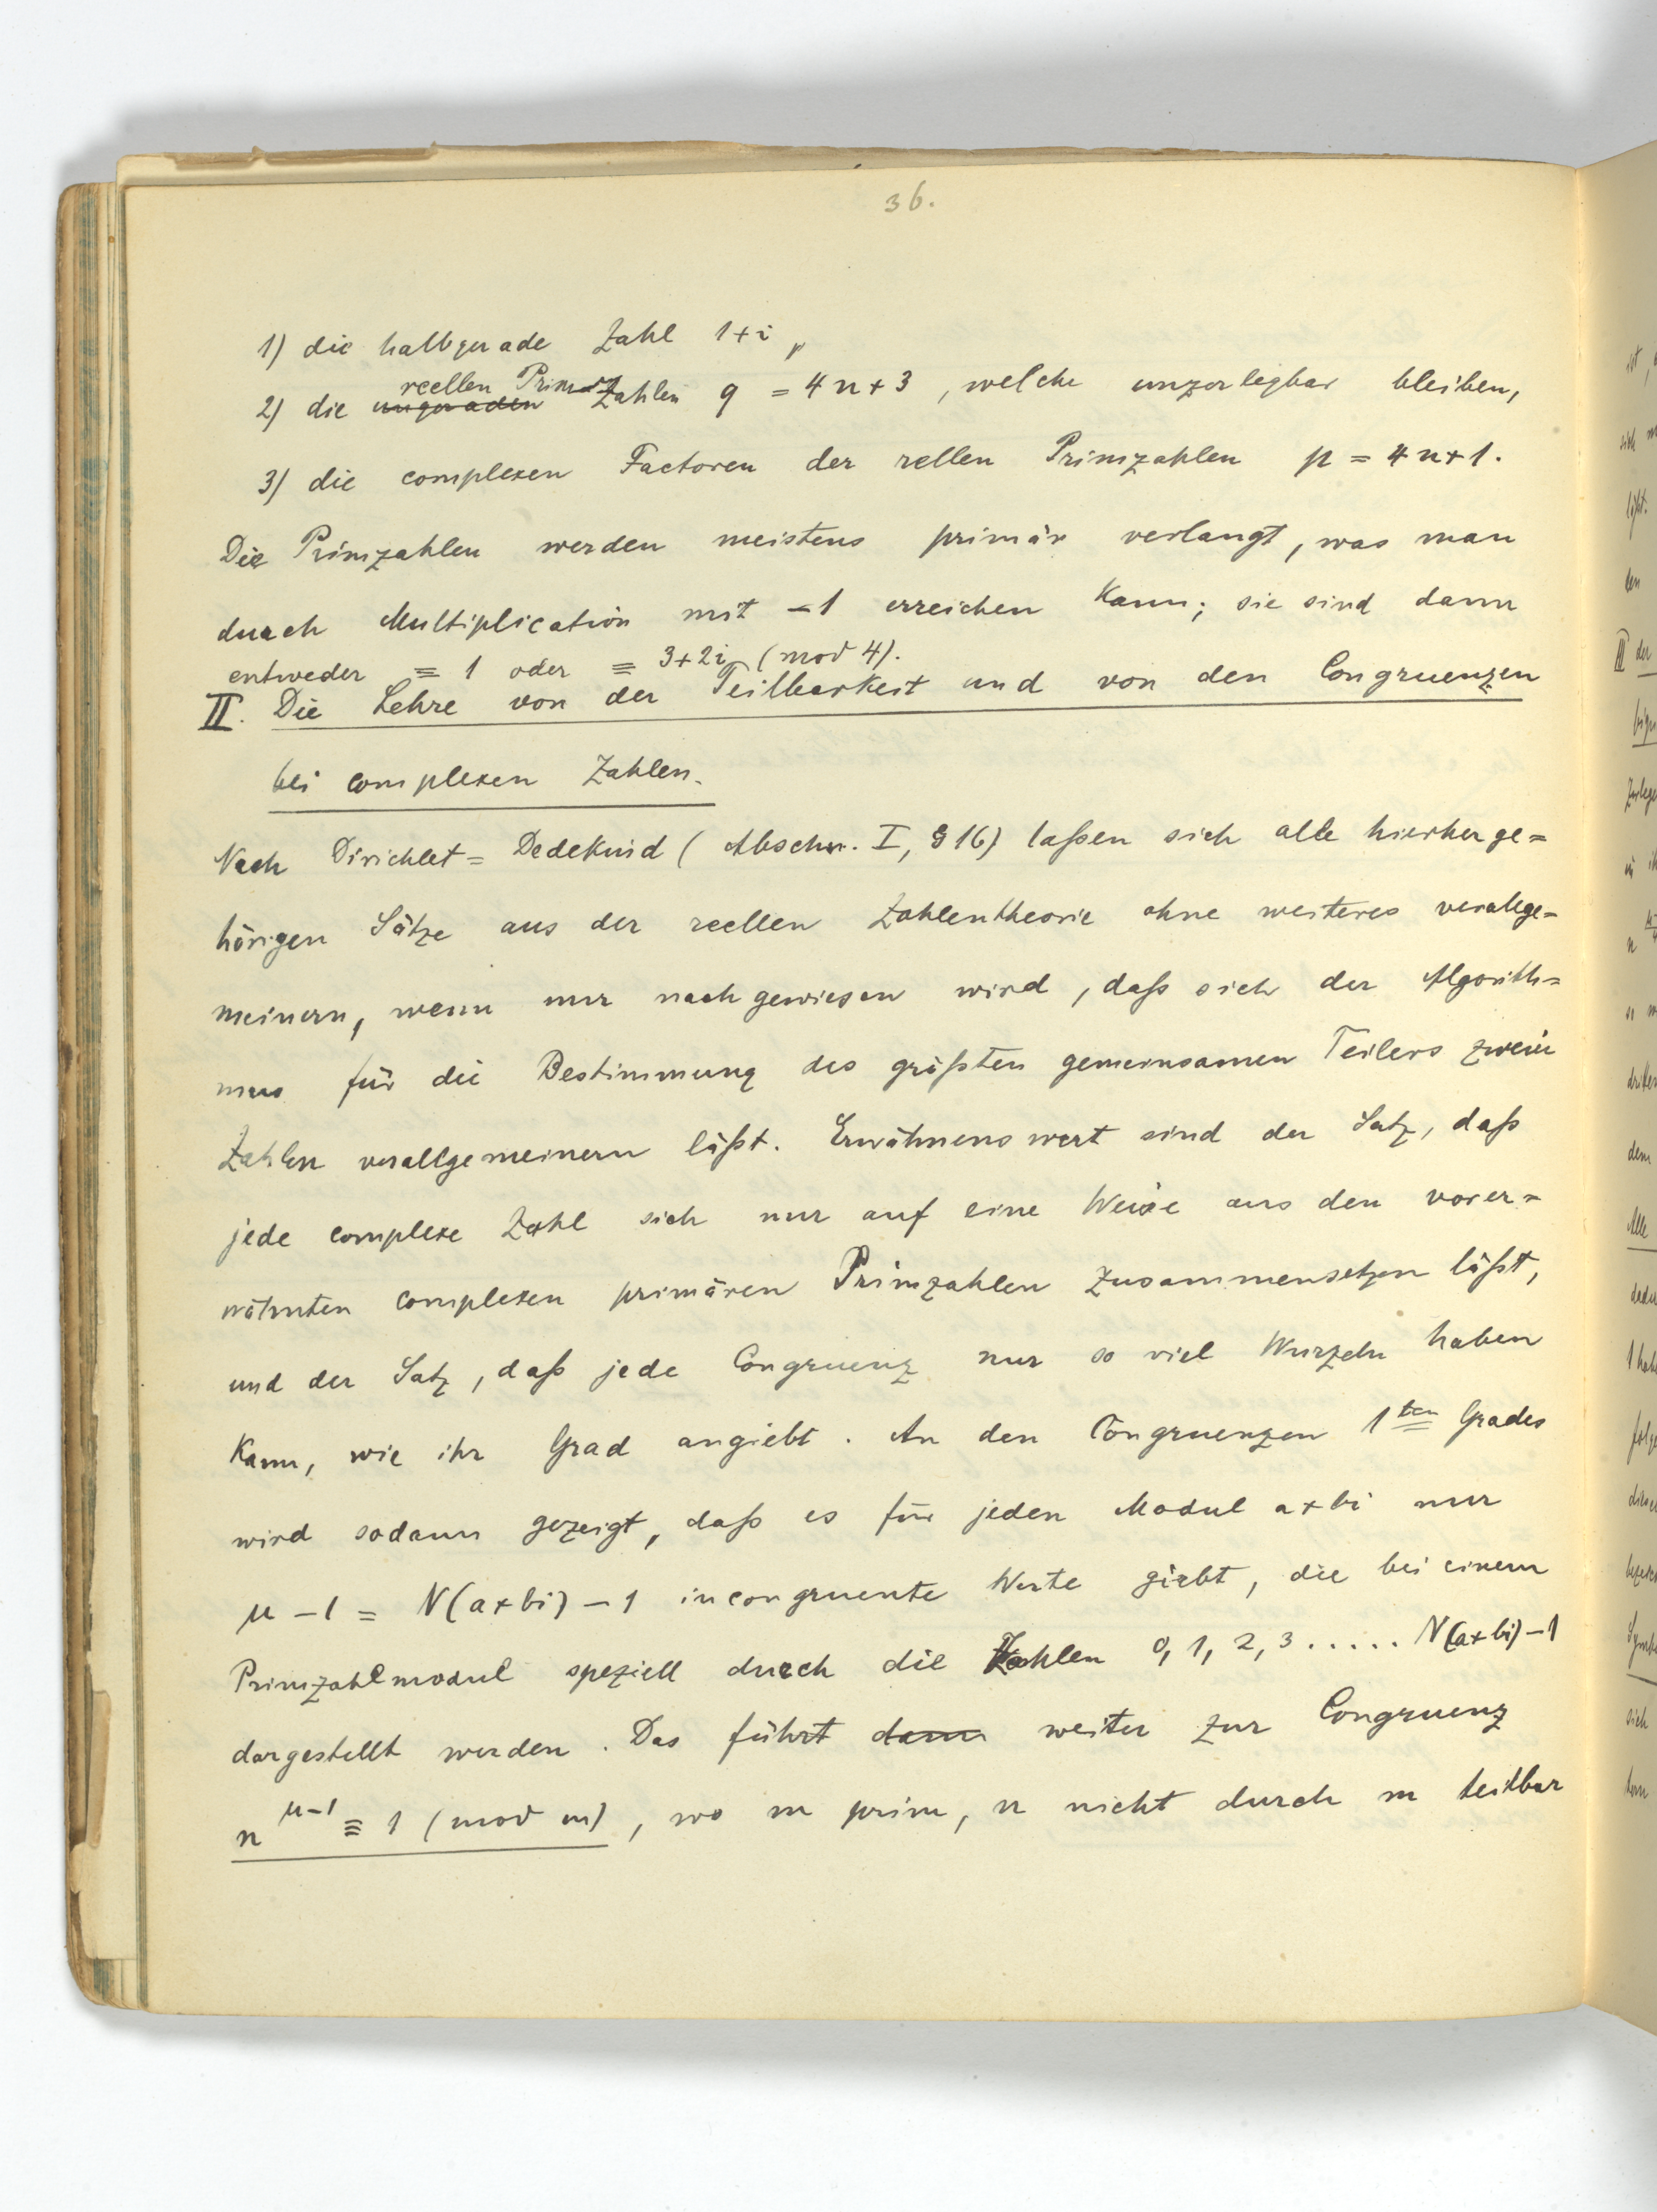 36.
1) die halbgerade Zahl 1+i,
reellen Prim-
2) die ungeraden Zahlen q = 4n+3, welche unzerlegbar bleiben,
3) die complexen Factoren der rellen Primzahlen p = 4n+1.
Die Primzahlen werden meistens primär verlangt, was man
durch Multiplication mit -1 erreichen kann; sie sind dann
entweder ≡ 1 oder ≡ 3+2i (mod 4).
II. Die Lehre von der Teilbarkeit und von den Congruenzen
bei complexen Zahlen.
Nach Dirichlet= Dedekind (Abschn. I, § 16) laßen sich alle hierherge=
hörigen Sätze aus der reellen Zahlentheorie ohne weiteres verallge=
meinern, wenn nur nachgewiesen wird, daß sich der Algorith=
mus für die Bestimmung des größten gemeinsamen Teilers zweier
Zahlen verallgemeinern läßt. Erwähnenswert sind der Satz, daß
jede complexe Zahl sich nur auf eine Weise aus den vorer=
wähnten complexen primären Primzahlen zusammensetzen läßt,
und der Satz, daß jede Congruenz nur so viel Wurzeln haben
kann, wie ihr Grad angiebt. An den Congruenzen 1ten Grades
wird sodann gezeigt, daß es für jeden Modul a+bi nur
μ-1 = N(a+bi)-1 incongruente Werte giebt, die bei einem
Primzahlmodul speziell durch die Zahlen 0, 1, 2, 3 ..... N(a+bi)-1
dargestellt werden. Das führt dann weiter zur Congruenz
n^{μ-1} ≡ 1 (mod m), wo m prim, n nicht durch m teilbar